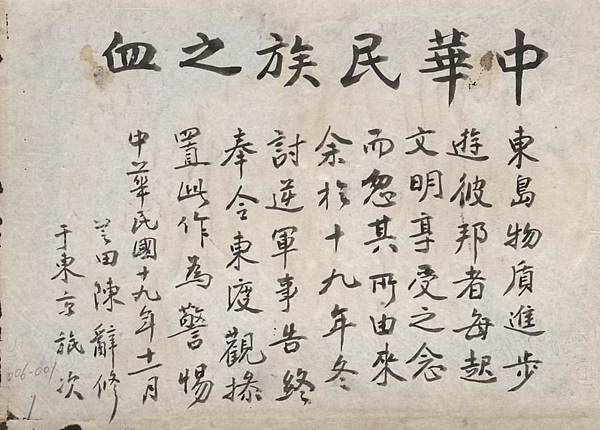 中華民族之血
東島物质進步
遊彼邦者每起
文明享受之念
而忽其所由來
余於十九年冬
討逆軍事告終
奉令東渡觀操
置此作為警惕
中華民國十九年十一月
芝田陳辭修
于東京旅次
006-001
1